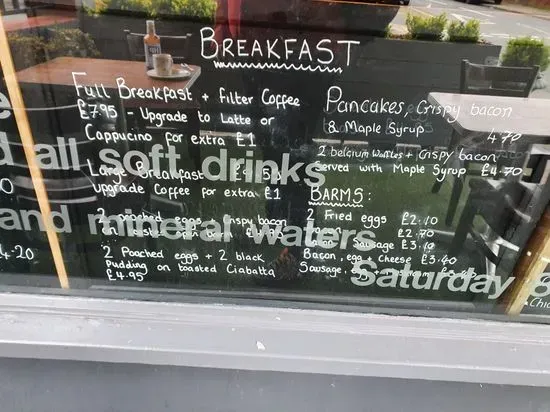 BREAKFAST
Full Breakfast + filter Coffee
£7.95 - Upgrade to Latte or
Cappucino for extra £1
Large Breakfast
Upgrade Coffee for extra £1
2 poached eggs + Crispy bacon
on
2 Poached eggs + 2 black
Pudding on toasted Ciabatta
£4.95
Pancakes, Crispy bacon
& Maple Syrup 4.70
2 belgium Waffles + Crispy bacon
Served with Maple Syrup £4.70
BARMS:
2 Fried eggs £2.10
£2.70
Sausage £3.10
Bacon, egg + Cheese £3.40
Sausage,
all soft drinks
and mineral waters
Saturday
4.20